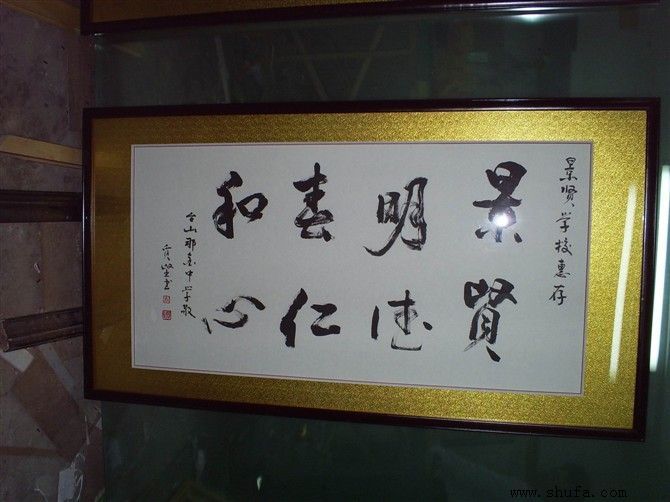 景賢学校惠存
景賢
明德
春仁
和心
台山那金中学敬
www.shufa.com